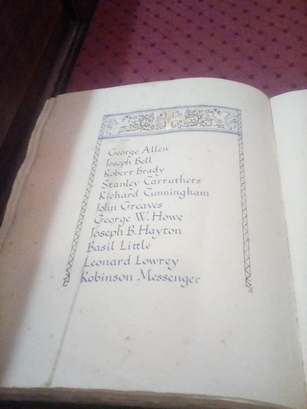 George Allen
Joseph Bell
Robert Brady
Stanley Carruthers
Richard Cunningham
John Greaves
George W. Howe
Joseph B. Hayton
Basil Little
Leonard Lowrey
Robinson Messenger